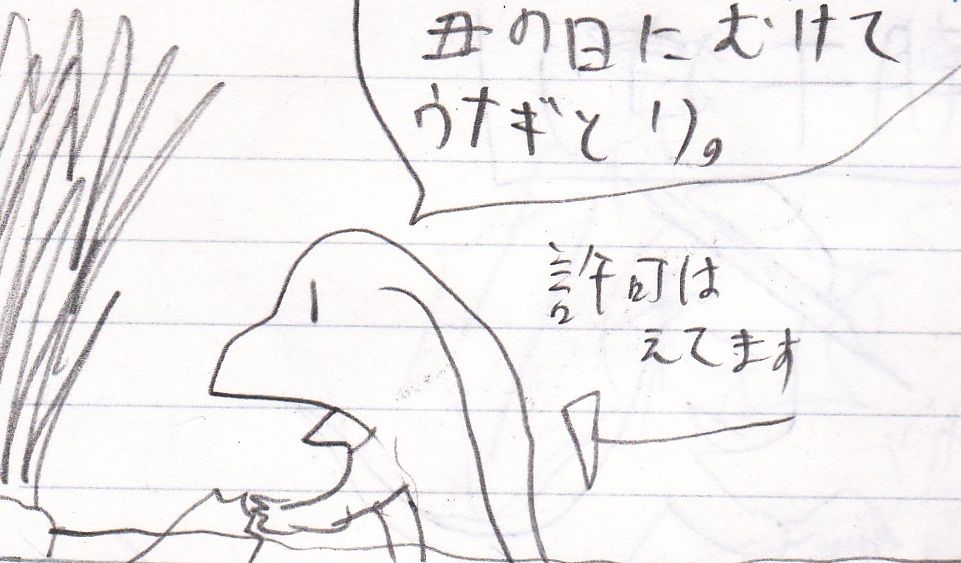 丑の日にむけて
ウナギとり。
許可は
えてます